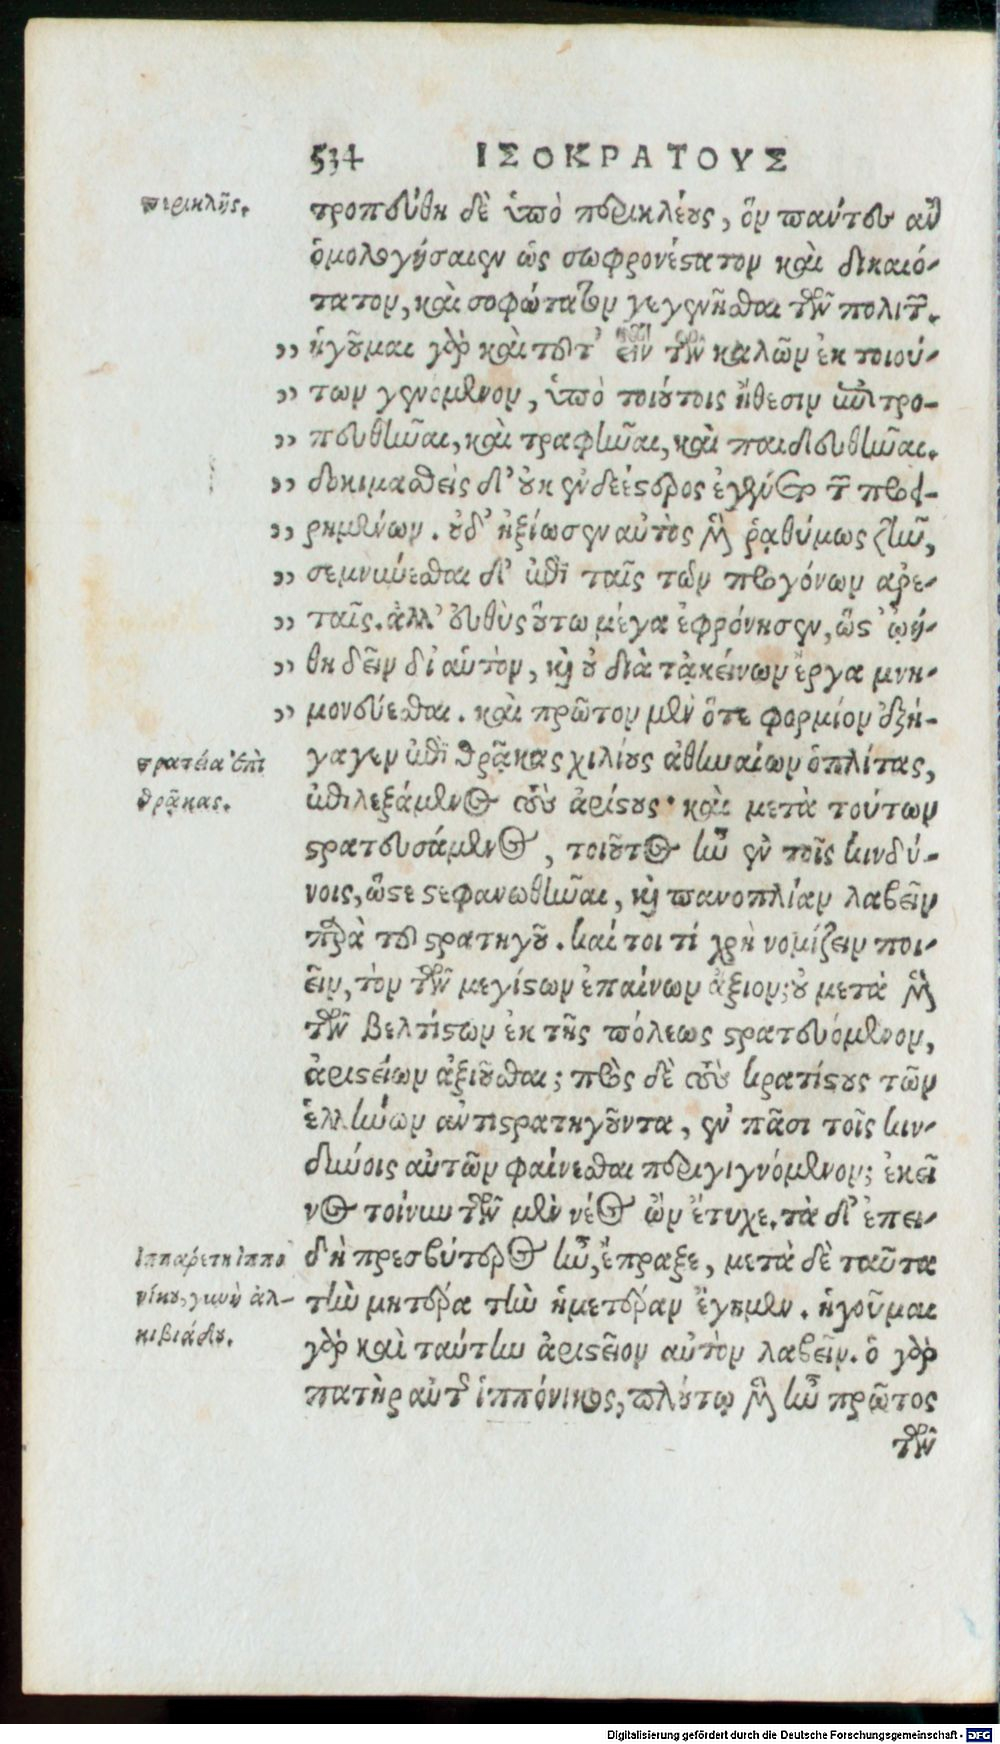 534 ΙΣΟΚΡΑΤΟΥΣ
περικλῆς.
τροπεύθη δὲ ὑπὸ περικλέους, ὃν πάντες ἂν
ὁμολογήσαιεν ὡς σωφρονέστατον καὶ δικαιό-
τατον, καὶ σοφώτατον γεγενῆσθαι τῶν πολιτῶν.
,, ἡγοῦμαι γὰρ καὶ τοῦτ' εἶν τῶν καλῶν ἐκ τοιού-
,, των γενόμενον, ὑπὸ τοιούτοις ἤθεσιν ἐπιτρο-
,, πευθῆναι, καὶ τραφῆναι, καὶ παιδευθῆναι.
,, δοκιμασθεὶς δ' οὐκ ἐνδεέστερος ἐγένετο τῶν προει-
,, ρημένων. οὐδ' ἠξίωσεν αὐτὸς μὲν ῥᾳθύμως ζῆν,
,, σεμνύνεσθαι δ' ἐπὶ ταῖς τῶν προγόνων ἀρε-
,, ταῖς. ἀλλ' εὐθὺς οὕτω μέγα ἐφρόνησεν, ὥστ' ᾠή-
,, θη δεῖν δι' αὑτὸν, καὶ οὐ διὰ τἀκείνων ἔργα μνη-
,, μονεύεσθαι. καὶ πρῶτον μὲν ὅτε φορμίον ἐξή-
γαγεν ἐπὶ θρᾴκας χιλίους ἀθηναίων ὁπλίτας,
στρατεία ἐπὶ
θρᾴκας.
ἐπιλεξάμενος τοὺς ἀρίστους· καὶ μετὰ τούτων
στρατευσάμενος, τοιοῦτος ἦν ἐν τοῖς κινδύ-
νοις, ὥστε στεφανωθῆναι, καὶ πανοπλίαν λαβεῖν
παρὰ τοῦ στρατηγοῦ. καίτοι τί χρὴ νομίζειν ποι-
εῖν, τὸν τῶν μεγίστων ἐπαίνων ἄξιον; οὐ μετὰ μὲν
τῶν βελτίστων ἐκ τῆς πόλεως στρατευόμενον,
ἀριστείων ἀξιοῦσθαι; πρὸς δὲ τοὺς κρατίστους τῶν
ἑλλήνων ἀντιστρατηγοῦντα, ἐν πᾶσι τοῖς κιν-
δύνοις αὐτῶν φαίνεσθαι περιγιγνόμενον; ἐκεῖ
νος τοίνυν τῶν μὲν νέος ὢν ἔτυχε. τὰ δ' ἐπει-
δὴ πρεσβύτερος ἦν, ἔπραξε, μετὰ δὲ ταῦτα
Ἱππαρέτη ἱππο
νίκου, γυνὴ ἀλ-
κιβιάδου.
τὴν μητέρα τὴν ἡμετέραν ἔγημεν. ἡγοῦμαι
γὰρ καὶ ταύτην ἀριστεῖον αὐτὸν λαβεῖν. ὁ γὰρ
πατὴρ αὐτῆς ἱππόνικος, πλούτῳ μὲν ἦν πρῶτος
τῶν
Digitalisierung gefördert durch die Deutsche Forschungsgemeinschaft - DFG